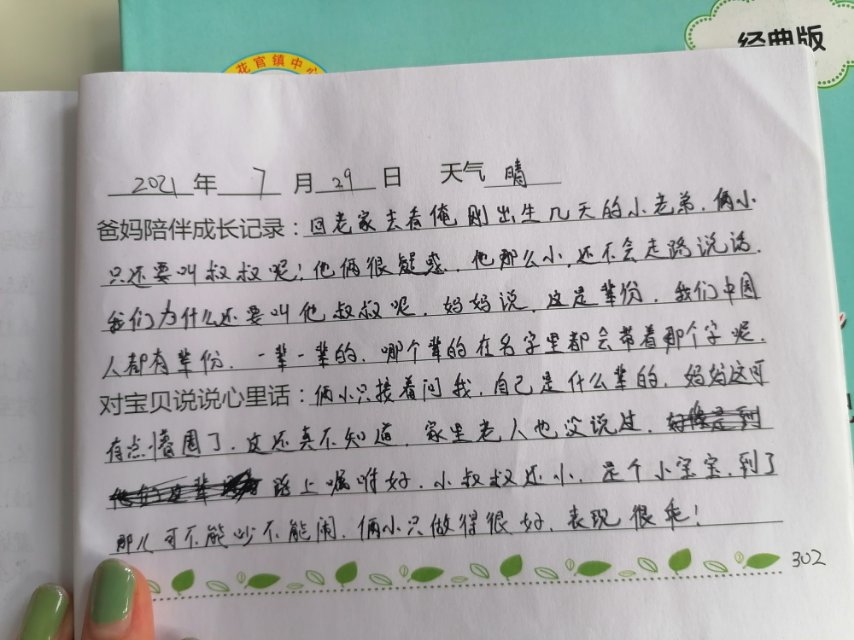 经典版
花官镇中心
2021年 7月29日 天气 晴
爸妈陪伴成长记录：回老家去看俺刚出生几天的小老弟，俩小
只还要叫叔叔呢！他俩很疑惑，他那么小，还不会走路说话，
我们为什么还要叫他叔叔呢，妈妈说，这是辈份，我们中国
人都有辈份，一辈一辈的，哪个辈的在名字里都会带着那个字呢，
对宝贝说说心里话：俩小只接着问我，自己是什么辈的，妈妈这可
有点懵圈了，这还真不知道，家里老人也没说过，
路上嘱咐好，小叔叔还小，是个小宝宝，到了
那儿可不能吵不能闹，俩小只做得很好，表现很乖！
302